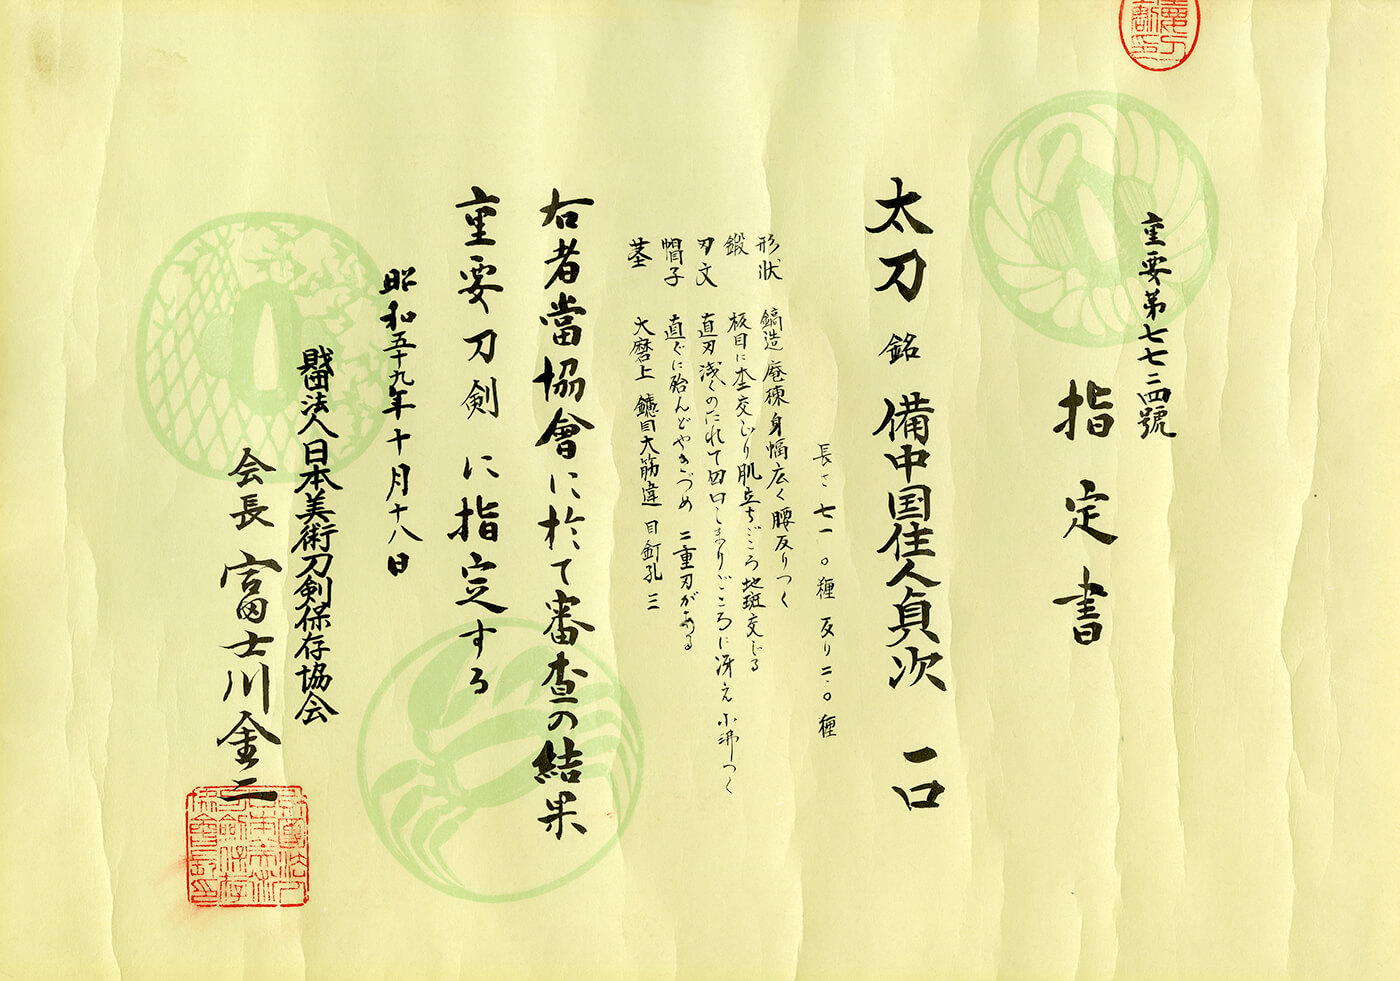 重要第七七二四號
指定書
太刀 銘 備中国住人貞次 一口
長さ 七一.〇糎 反り二.〇糎
形状 鎬造 庵棟 身幅広く 腰反りつく
鍛 板目に杢交じり 肌立ちごころ 地斑交じる
刃文 直刃浅くのたれて匂口しまりごころに冴え 小沸つく
帽子 直ぐに殆んどやきづめ 二重刃がある
茎 大磨上 鑢目大筋違 目釘孔三
右者當協會に於て審査の結果
重要刀剣に指定する
昭和五十九年十月十八日
財団法人日本美術刀剣保存協会
会長 富士川金二